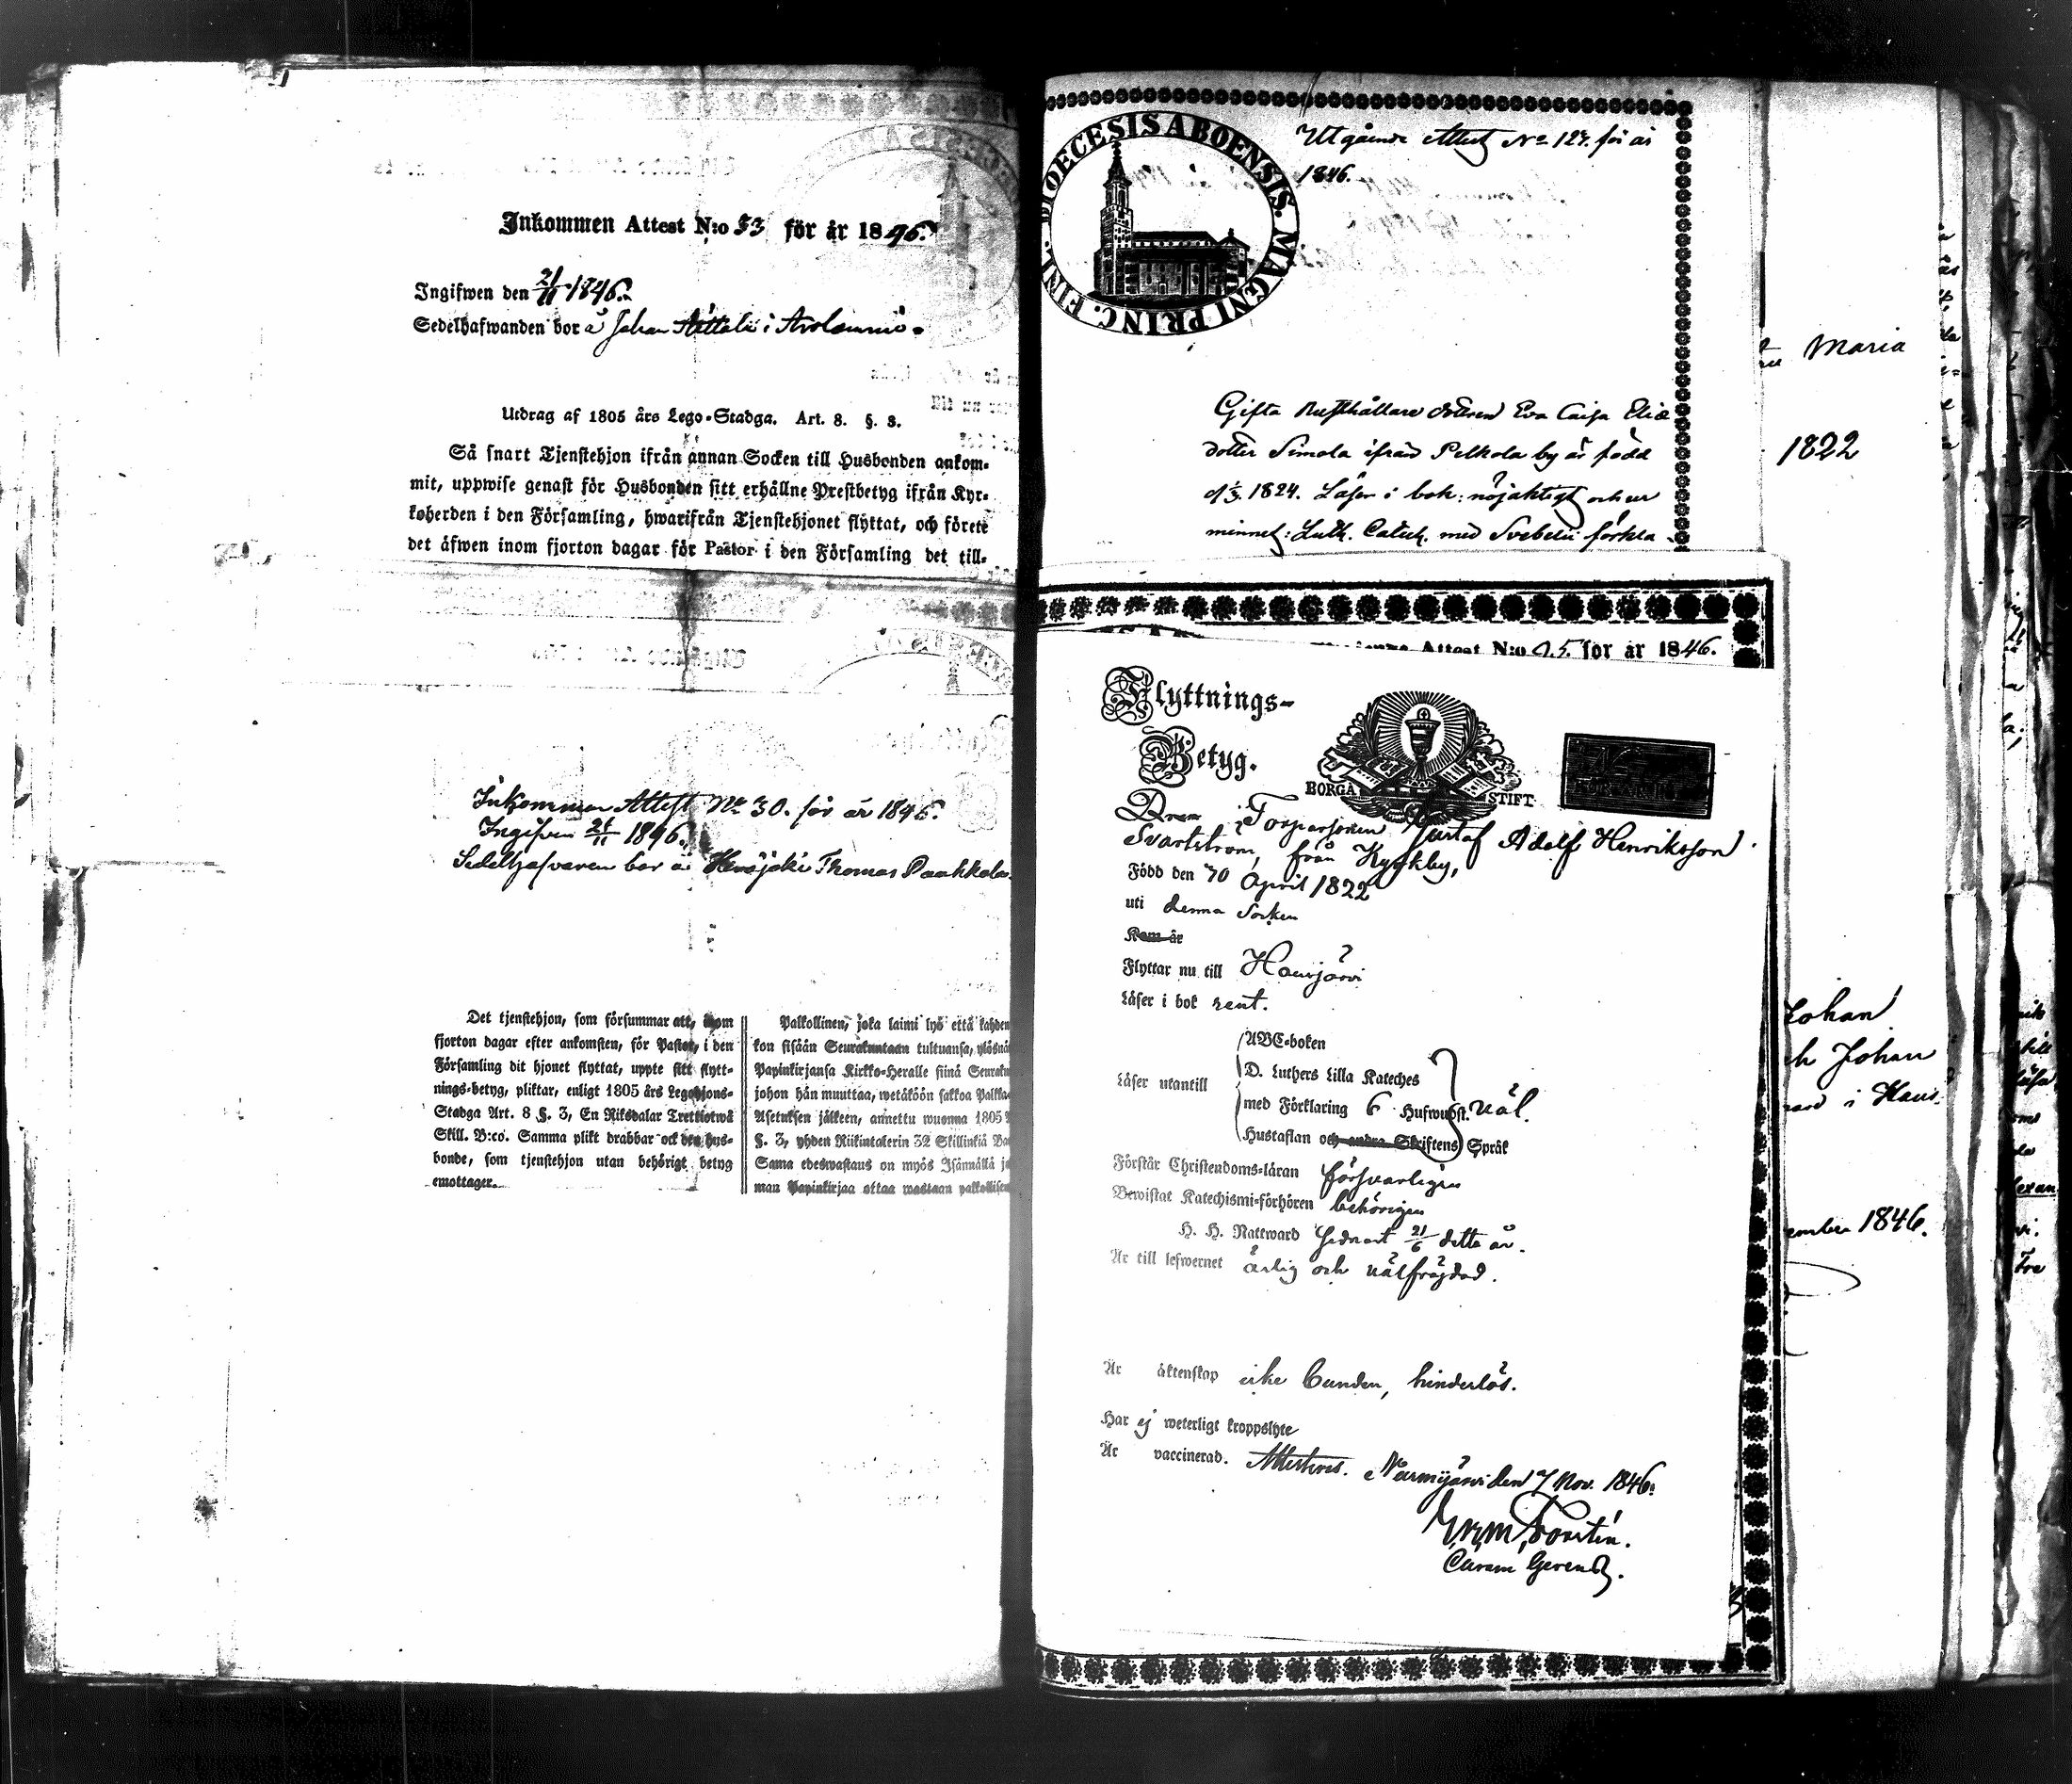 Inkommen Attest N:o 53 för år 1846.
Ingifwen den 21/11 1846.
Sedelhafwanden bor å Johan i
Utdrag af 1805 års Lego-Stadga. Art. 8. §. 3.
Så snart Tjenstehjon ifrån annan Socken till Husbonden ankom-
mit, uppwise genast för Husbonden sitt erhållne Prestbetyg ifrån Kyr-
koherden i den Församling, hwarifrån Tjenstehjonet flyttat, och förete
det äfwen inom fjorton dagar för Pastor i den Församling det till-
Inkommen Attest No 30. för år 1846.
Ingifven 21/11 1846.
Sedelhafvaren bor å Thomas Paakkola
Det tjenstehjon, som försummar att, inom
fjorton dagar efter ankomsten, för Pastor, i den
Församling dit hjonet flyttat, uppte sitt flytt-
nings-betyg, pliktar, enligt 1805 års Legohjons-
Stadga Art. 8 §. 3, En Riksdalar Trettiotwå
Skill. B:co. Samma plikt drabbar ock den hus-
bonde, som tjenstehjon utan behörigt betyg
emottager.
Palkollinen, joka laimi lyö että kahden
kon sisään Seurakuntaan tultuansa, ylösnä
Papinkirjansa Kirkko-Heralle siinä Seuraku
johon hän muuttaa, wetäköön sakkoa Palkka-
Asetuksen jälkeen, annettu wuonna 1805
§. 3, yhden Riikintalerin 32 Skillinkiä Ba
Sama edeswastaus on myös Isännällä j
man Papinkirjaa ottaa wastaan palkollisen
DIOECESIS ABOENSIS. MAGNI PRINC. FINL.
Utgående Attest No 127. för år
1846.
Gifta Rusthållare dottren Eva Caisa Elia
dotter Simola ifrån Pelkola by är född
d 1/3 1824. Läser i bok: nöjaktigt och ur
minnet: Luth. Catech. med Svebelii förkla-
Attest N:o 25. för år 1846.
Flyttnings-
Betyg.
BORGÅ STIFT
Torparsonen Gustaf Adolf Henriksson
Svartström, från Kyrkby,
Född den 10 April 1822
uti denna Socken
Kom år
Flyttar nu till Hausjärvi
Läser i bok rent.
Läser utantill
ABC-boken
D. Luthers Lilla Kateches
med Förklaring 6 Hufwudst. väl.
Hustaflan och andra Skriftens Språk
Förstår Christendoms-läran försvarligen
Bewistat Katechismi-förhören behörigen
H. H. Nattward sednast 21/6 detta år.
Är till lefwernet ärlig och välfräjdad.
Är äktenskap icke bunden, hinderlös.
Har ej weterligt kroppslyte
Är vaccinerad. Attesteras. Nurmijärvi den 7 Nov. 1846.
Curam Gerens.
Maria
1822
Johan
ch Johan
i Haus
ember 1846.